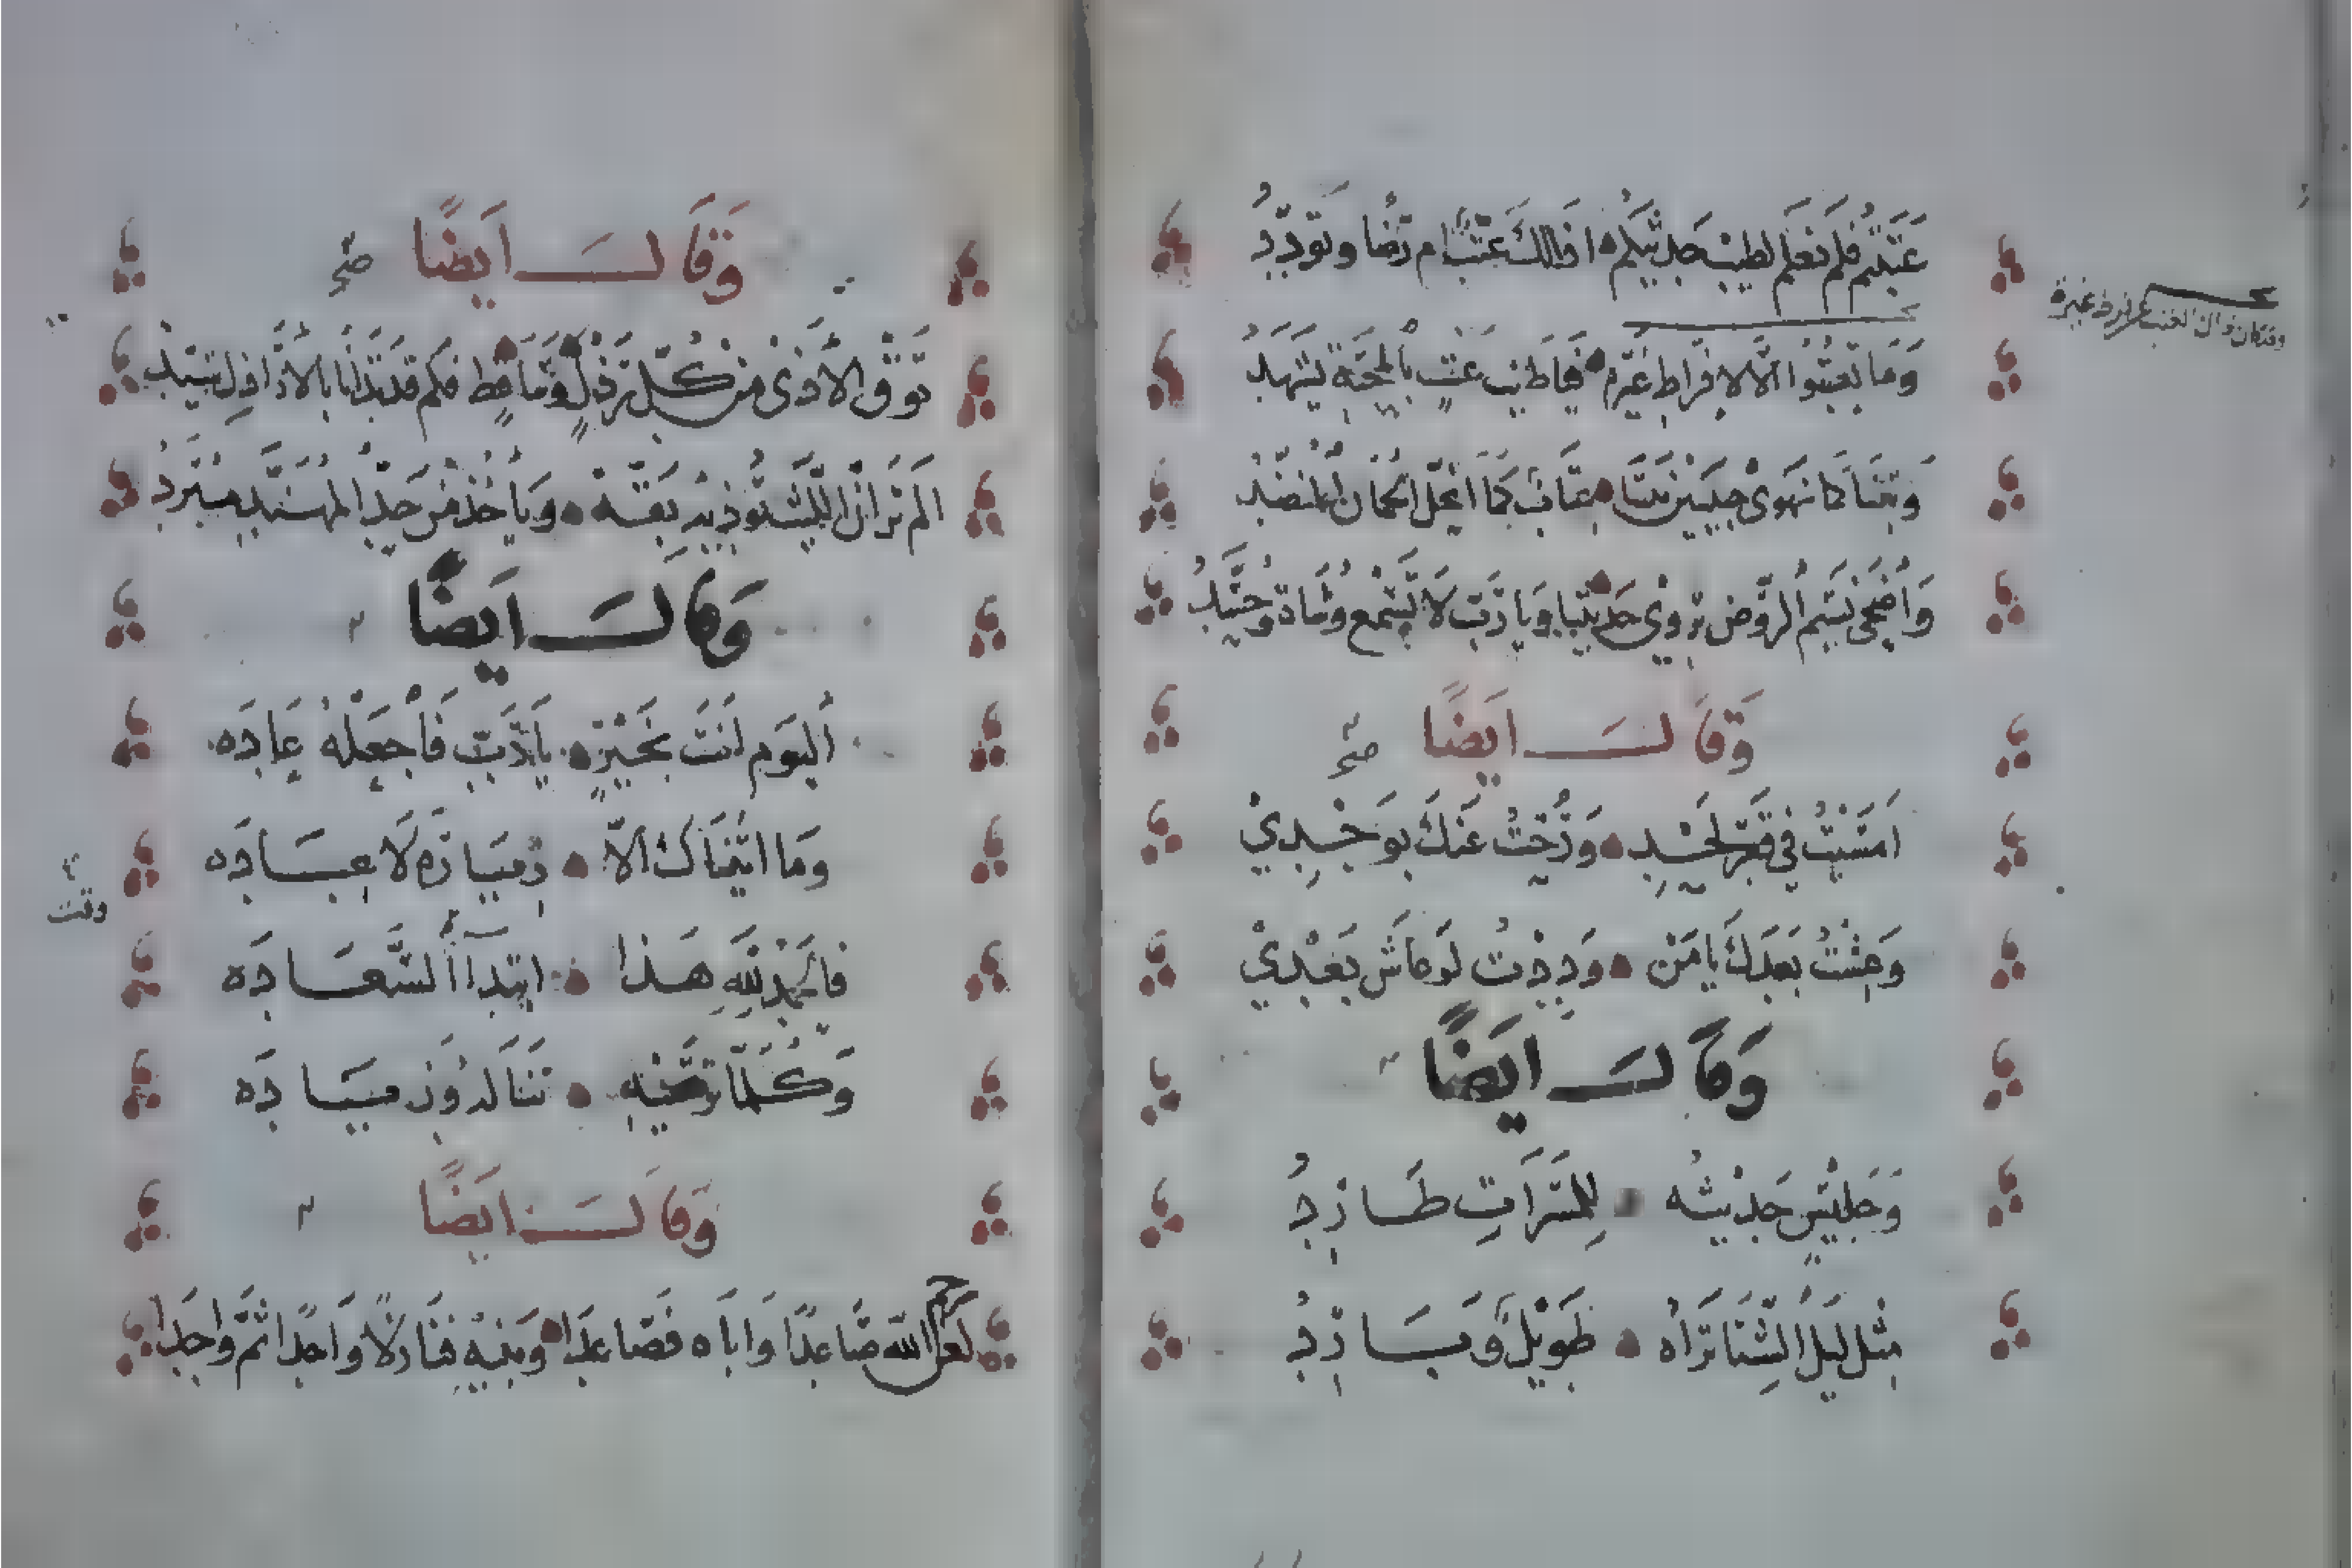 عَتَبتُم فلم نعلم لطيب حديثكم أذلك عتب ام رضا وتودد
وما تعتبوا الا لافراط غيرة فيا طيب عتب بالمحبة يشهد
وبتنا كما نهوى حبيبين بيننا عتاب كما انحل الجمان المنضد
واضحى نسيم الروض يروي حديثنا ويا رب لا يسمع وشاة وحسد
وقال ايضا صح
امسيت في قعر لحد ورحت عنك بوجدي
وعشت بعدك يا من وددت لو عاش بعدي
وقال ايضا
وجليس حديثه للمسرات طارد
مثل ليل الشتا تراه طويل وبارد
وقد كان ذاك العتب عن فرط غيرة
وقال ايضا صح
توق الاذى من كل رذل وساقط فكم قد تأذا بالاراذل سيد
الم تر ان الليث تؤذيه بقة وياخذ من حد المهند مبرد
وقال ايضا
اليوم انت بخير يا رب فاجعله عاده
وما اتيناك الا زيارة لا عياده
فالحمد لله هذا ابتدا السعاده
وكلما ترتجيه تنال دون زياده
وقت
وقال ايضا
لعن الله صاعدا واباه فصاعدا وبنيه فنازلا واحدا ثم واحدا